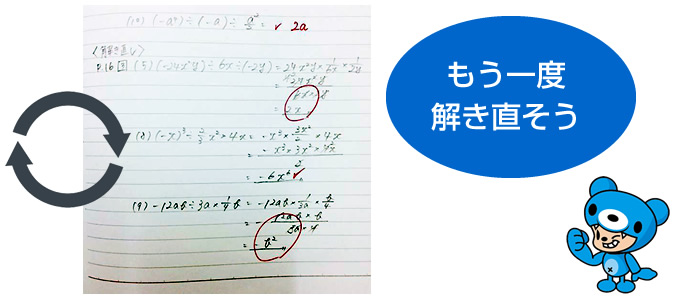 (10) (-a²)÷(-a)÷a²/2= ✓ 2a
<解き直し>
P.16 3 (5) (-24x²y)÷6x÷(-2y)=24x²y×1/6x×1/2y
=
= 2x
(8) (-x)³÷2/3x²×4x=-x³×3x²/2×4x
=-x³×3x²×4x/2
=-6x⁶ ✓
(9) -12ab÷3a×1/4b=-12ab×1/3a×b/4
=-12ab×b/3a×4
=-b²
もう一度
解き直そう